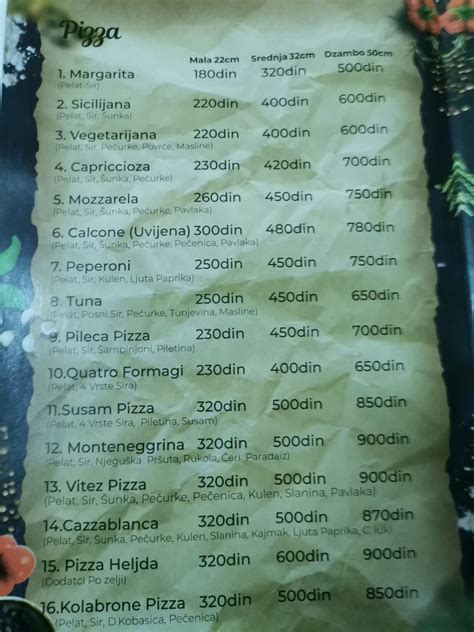 Pizza
Mala 22cm Srednja 32cm Dzambo 50cm
1. Margarita 180din 320din 500din
(Pelat-Sir)
2. Sicilijana 220din 400din 600din
(Pelat, Sir, Šunka)
3. Vegetarijana 220din 400din 600din
(Pelat, Sir, Pečurke, Povrće, Masline)
4. Capriccioza 230din 420din 700din
(Pelat, Sir, Šunka, Pečurke)
5. Mozzarela 260din 450din 750din
(Pelat, Sir, Šunka, Pečurke, Pavlaka)
6. Calcone (Uvijena) 300din 480din 780din
(Pelat, Sir, Šunka, Pečurke, Pečenica, Pavlaka)
7. Peperoni 250din 450din 750din
(Pelat, Sir, Kulen, Ljuta Paprika)
8. Tuna 250din 450din 650din
(Pelat, Posni Sir, Pečurke, Tunjevina, Masline)
9. Pileca Pizza 230din 450din 700din
(Pelat, Sir, Šampinjoni, Piletina)
10.Quatro Formagi 230din 400din 650din
(Pelat, 4 Vrste Sira)
11.Susam Pizza 320din 500din 850din
(Pelat, 4 Vrste Sira, Piletina, Susam)
12. Monteneggrina 320din 500din 900din
(Pelat, Sir, Njeguška Pršuta, Rukola, Čeri Paradaiz)
13. Vitez Pizza 320din 500din 900din
(Pelat, Sir, Šunka, Pečurke, Pečenica, Kulen, Slanina, Pavlaka)
14.Cazzablanca 320din 500din 870din
(Pelat, Sir, Šunka, Pečurke, Kulen, Slanina, Kajmak, Ljuta Paprika, C. luk)
15. Pizza Heljda 320din 600din 900din
(Dodatci Po zelji)
16.Kolabrone Pizza 320din 500din 850din
(Pelat, Sir, D.Kobasica, Pečenica)